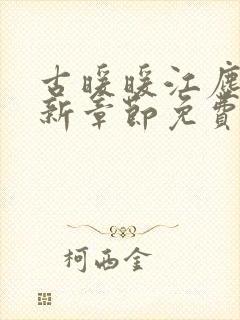 古暖暖江尘
新章节免费
柯西金